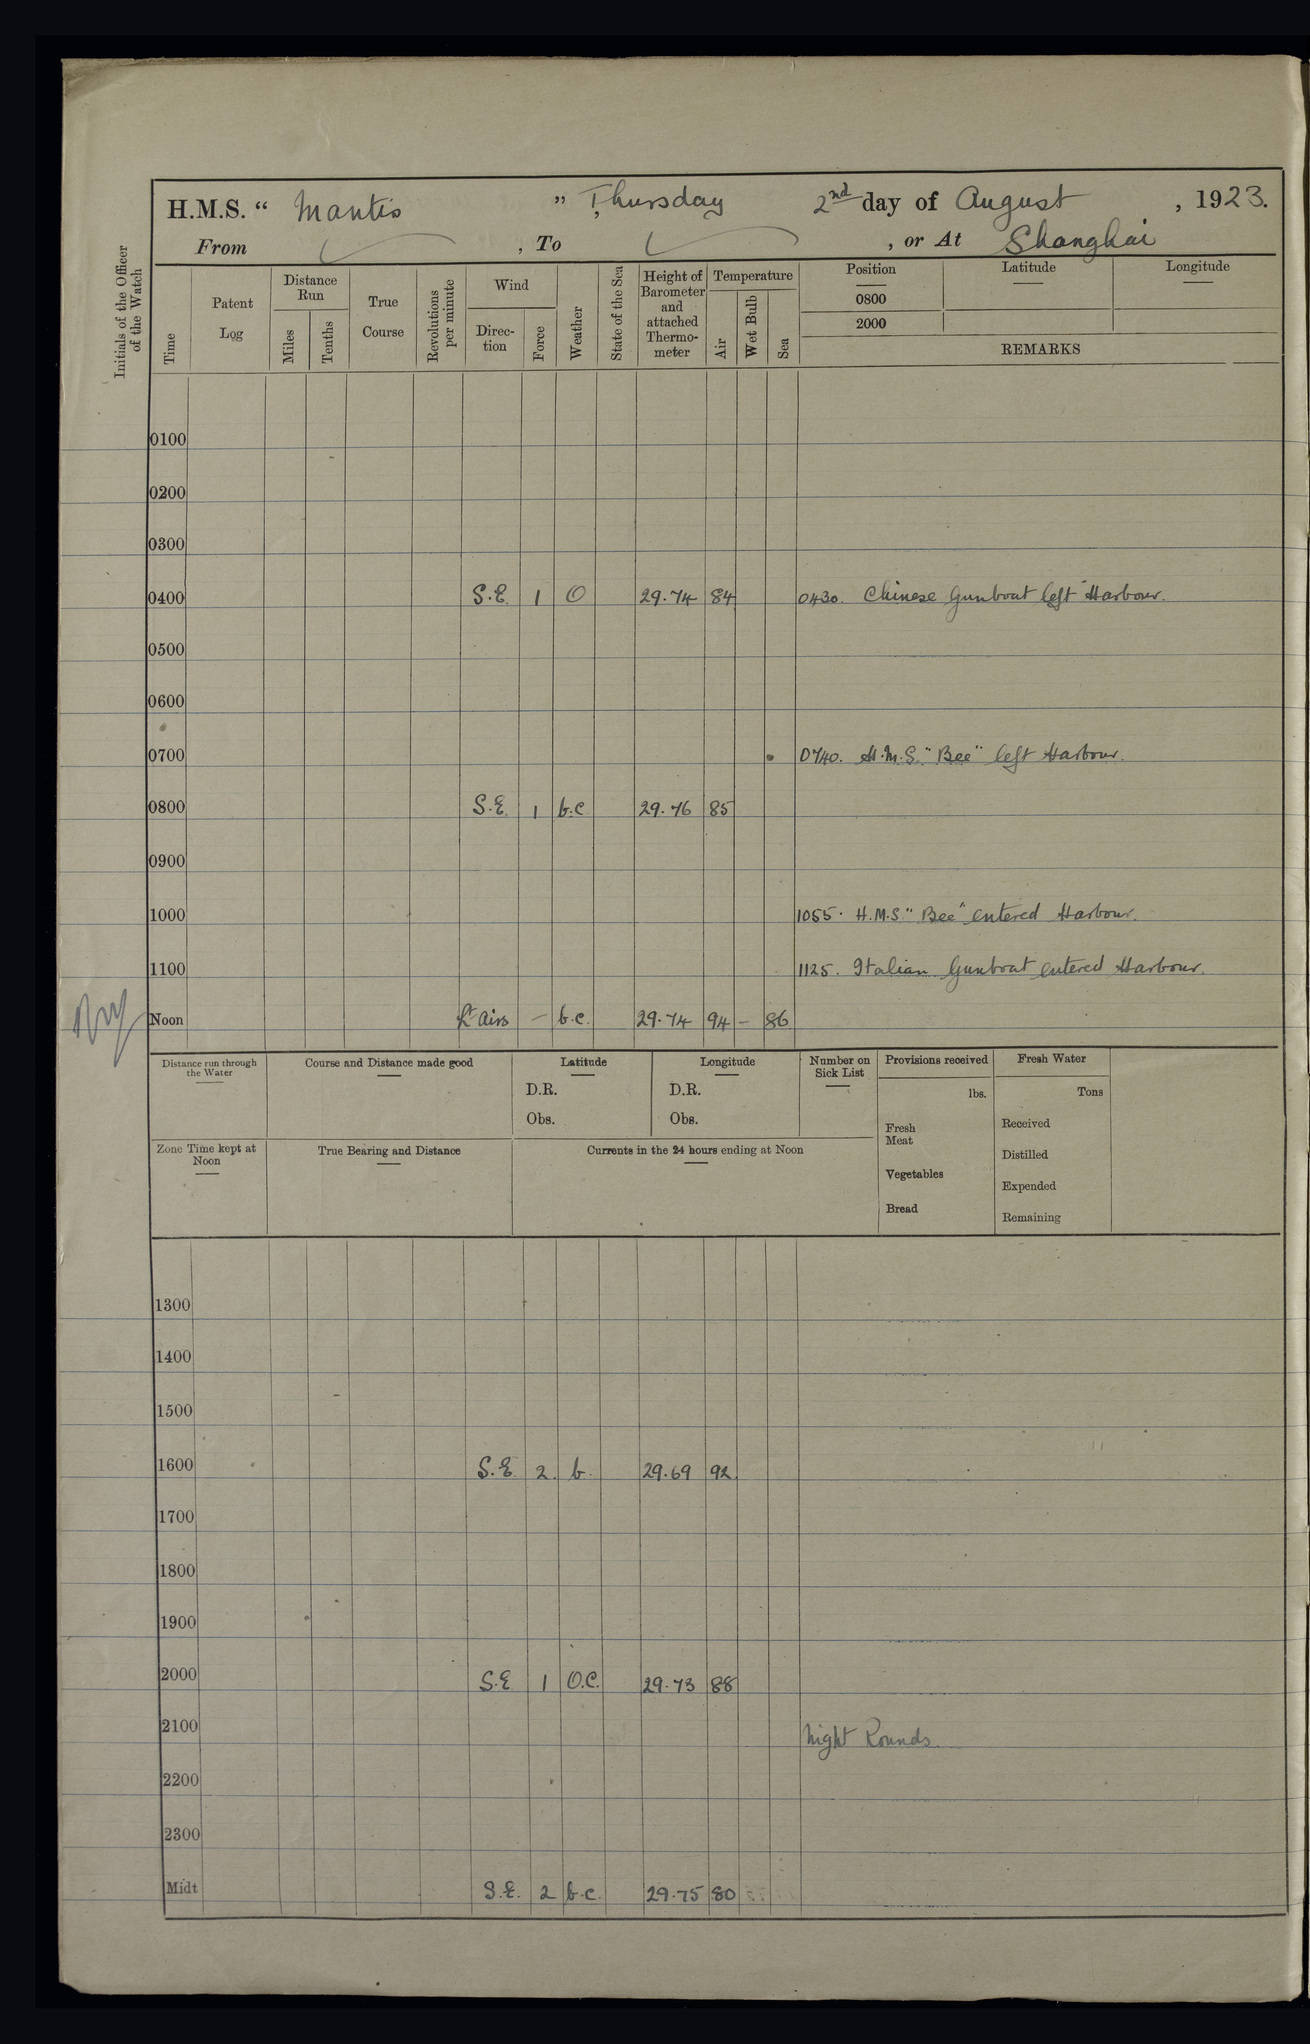 H.M.S. “ Mantis ” Thursday 2nd day of August , 1923.
From , To , or At Shanghai
Initials of the Officer of the Watch
Time
Patent Log
Distance Run
Miles
Tenths
True Course
Revolutions per minute
Wind
Direc-
tion
Force
Weather
State of the Sea
Height of
Barometer
and
attached
Thermo-
meter
Temperature
Air
Wet Bulb
Sea
Position Latitude Longitude
0800
2000
REMARKS
0100
0200
0300
0400 S.E. 1 O 29.74 84 0430. Chinese Gunboat left Harbour.
0500
0600
0700 0740. H.M.S. "Bee" left Harbour.
0800 S.E. 1 b.c 29.76 85
0900
1000 1055. H.M.S. "Bee" entered Harbour.
1100 1125. Italian Gunboat entered Harbour.
Noon Lt airs – b.c. 29.74 94 – 86
Distance run through
the Water
Course and Distance made good
Latitude
D.R.
Obs.
Longitude
D.R.
Obs.
Number on
Sick List
Provisions received
lbs.
Fresh
Meat
Vegetables
Bread
Fresh Water
Tons
Received
Distilled
Expended
Remaining
Zone Time kept at
Noon
True Bearing and Distance
Currents in the 24 hours ending at Noon
1300
1400
1500
1600 S.E. 2. b. 29.69 92.
1700
1800
1900
2000 S.E 1 O.C. 29.73 88
2100 Night Rounds.
2200
2300
Midt S.E. 2 b.c. 29.75 80